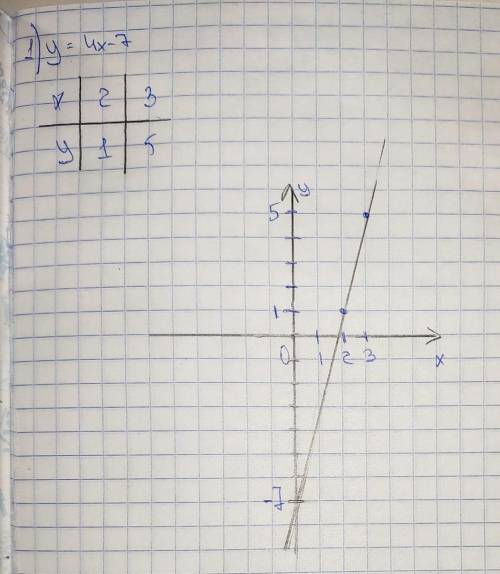 1) y = 4x-7
x 2 3
y 1 5
y
5
1
0 1 2 3 x
-7